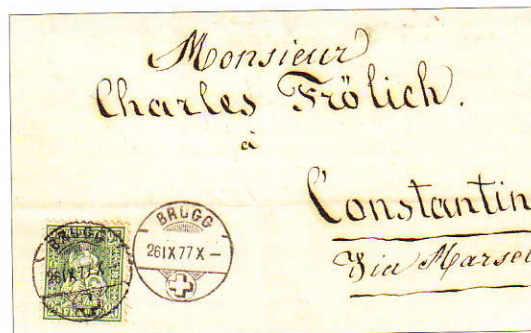 Monsieur
Charles Frölich.
à
Constantin
Via Marsei
BRUGG
26 IX 77 X –
BRUGG
26 IX 77 X –
FRANCO